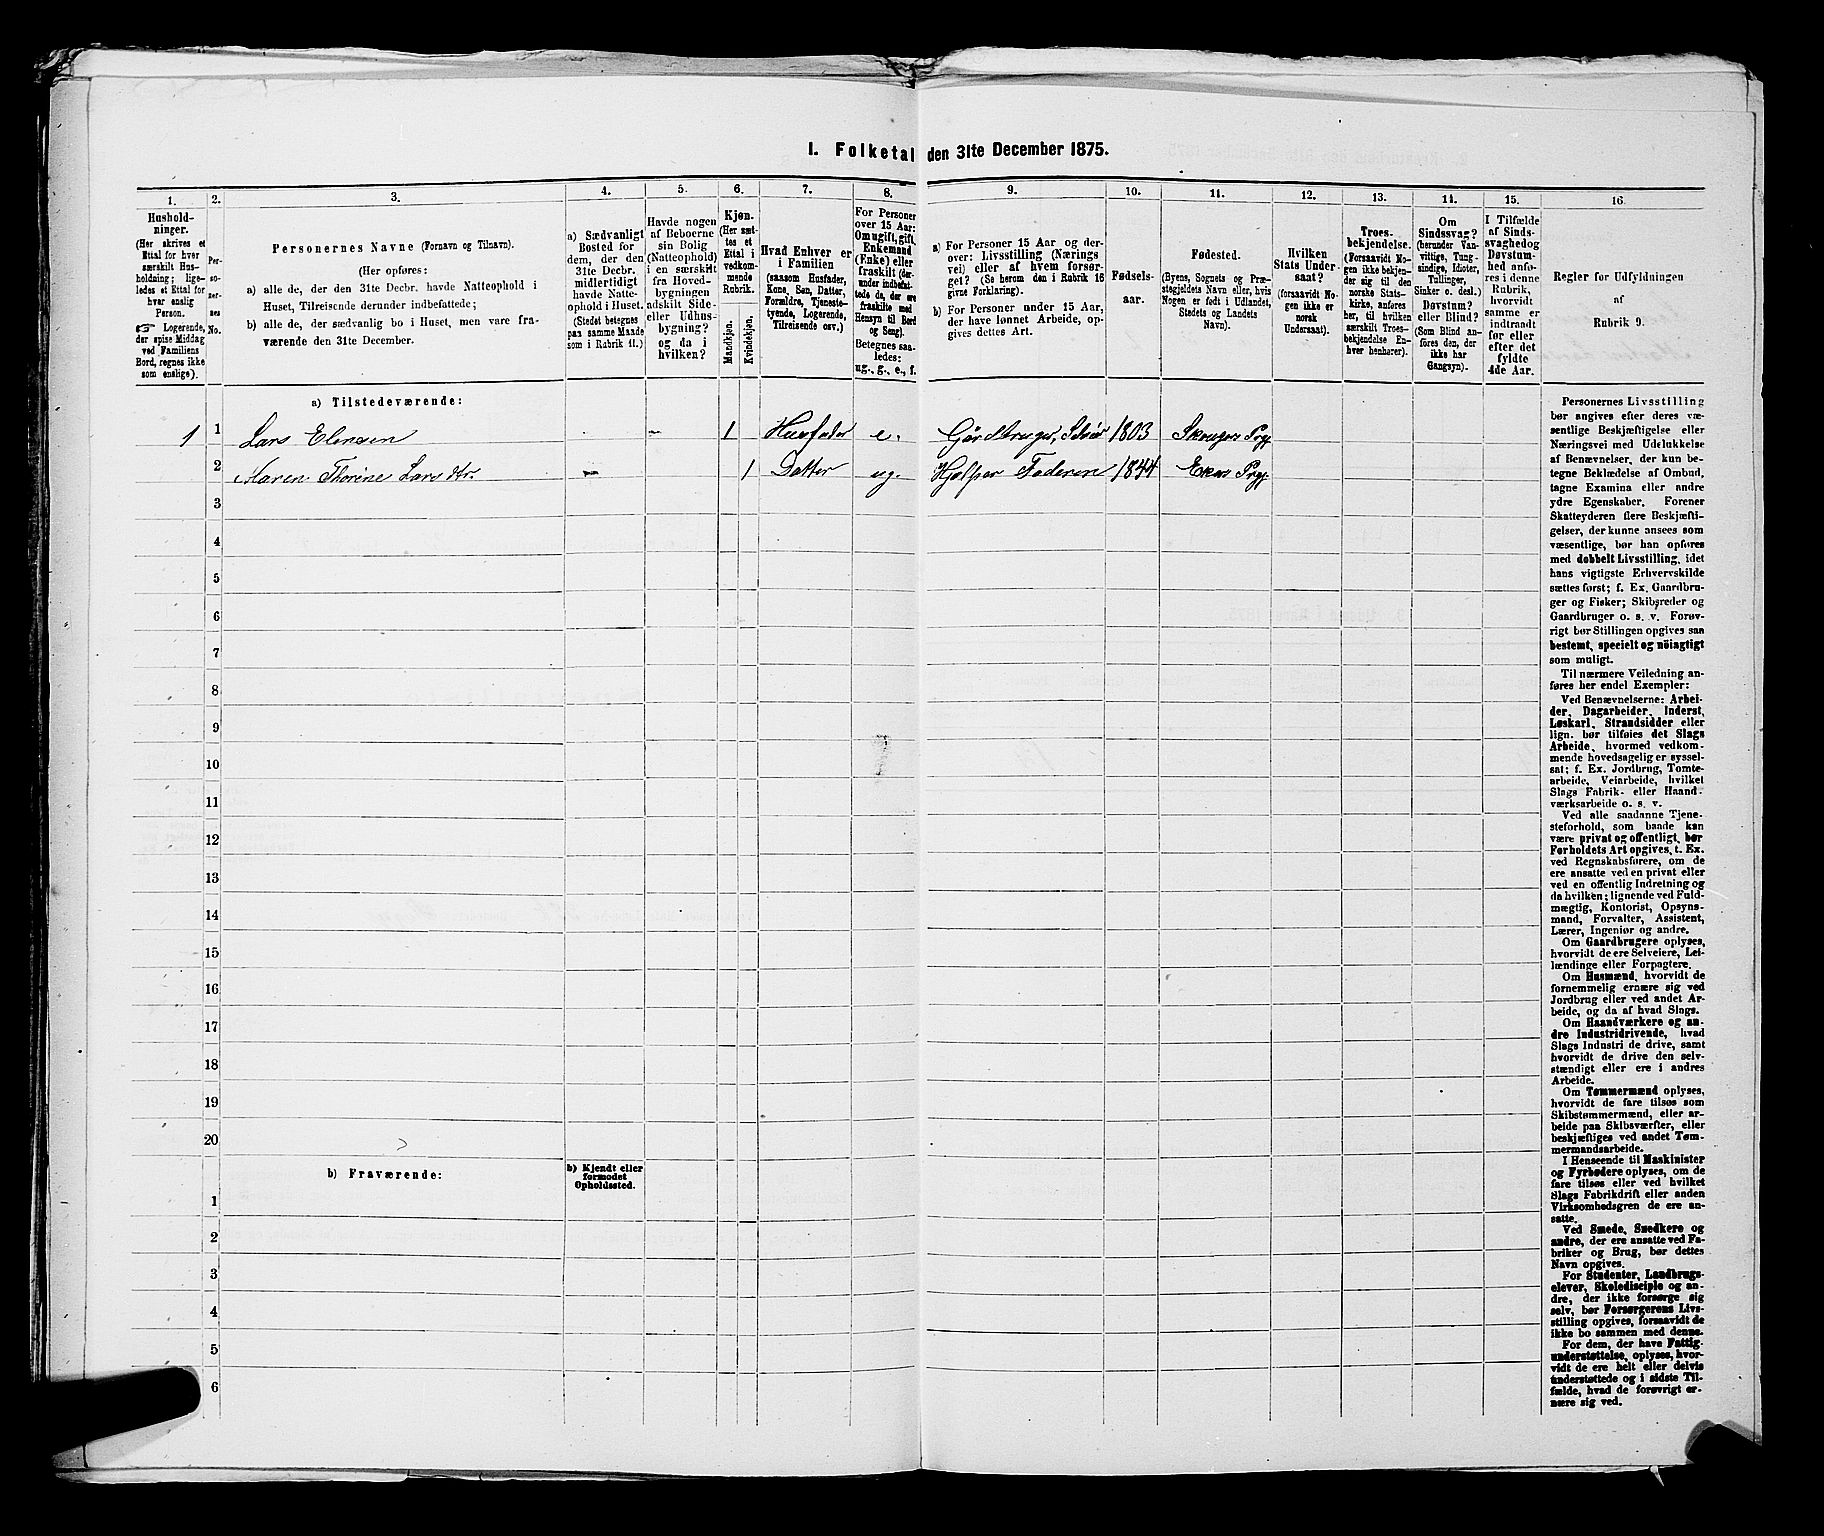 I. Folketal den 31te December 1875.
1.
2.
3.
4.
5.
6.
7.
8.
9.
10.
11.
12.
13.
14.
15.
16.
Hushold-
ninger.
(Her skrives et
Ettal for hver
særskilt Hus-
holdning; lige-
ledes et Ettal for
hver enslig
Person.
☞ Logerende,
der spise Middag
ved Familiens
Bord, regnes ikke
som enslige).
Per-
so-
ner-
nes
No.
Personernes Navne (Fornavn og Tilnavn).
(Her opføres:
a) alle de, der den 31te Decbr. havde Natteophold i
Huset, Tilreisende derunder indbefattede;
b) alle de, der sædvanlig bo i Huset, men vare fra-
værende den 31te December.
a) Sædvanligt
Bosted for
dem, der den
31te Decbr.
midlertidigt
havde Natte-
ophold i Huset.
(Stedet betegnes
paa samme Maade
som i Rubrik 11.)
Havde nogen
af Beboerne
sin Bolig
(Natteophold)
i en særskilt
fra Hoved-
bygningen
adskilt Side-
eller Udhus-
bygning?
og da i
hvilken?
Kjøn.
(Her sæt-
tes et
Ettal i
vedkom-
mende
Rubrik.
Mandkjøn.
Kvindekjøn.
Hvad Enhver er
i Familien
(saasom Husfader,
Kone, Søn, Datter,
Forældre, Tjeneste-
tyende, Logerende,
Tilreisende osv.)
For Personer
over 15 Aar:
Om ugift, gift,
Enkemand
(Enke) eller
fraskilt (der-
under indbefat-
tede de, der ere
fraskilte med
Hensyn til Bord
og Seng).
Betegnes saa-
ledes:
ug., g., e., f.
a) For Personer 15 Aar og der-
over: Livsstilling (Nærings
vei) eller af hvem forsør-
get? (Se herom den i Rubrik 16
givne Forklaring).
b) For Personer under 15 Aar,
der have lønnet Arbeide, op-
gives dettes Art.
Fødsels-
aar.
Fødested.
(Byens, Sognets og Præ-
stegjeldets Navn eller, hvis
Nogen er født i Udlandet,
Stedets og Landets
Navn).
Hvilken
Stats Under-
saat?
(forsaavidt No-
gen ikke er
norsk
Undersaat).
Troes-
bekjendelse.
(Forsaavidt No-
gen ikke bekjen-
der sig til den
norske Stats-
kirke, anføres
her, til hvilken
særskilt Troes-
bekjendelse En-
hver henhører).
Om
Sindssvag?
(herunder Van-
vittige, Tung-
sindige, Idioter,
Tullinger,
Sinker o. desl.)
Døvstum?
eller Blind?
(Som Blind an-
føres den, der
ikke har
Gangsyn).
I Tilfælde
af Sinds-
svaghed og
Døvstum-
hed anfø-
res i denne
Rubrik,
hvorvidt
samme er
indtraadt
før eller
efter det
fyldte
4de Aar.
Regler for Udfyldningen
af
Rubrik 9.
a) Tilstedeværende:
1 1 Lars Elensen 1 Husfader e. Gårdbruger, Selveier 1803 Skouger Prgj
2 Maren Thorine Larsdtr. 1 Datter ug. Hjælper Faderen 1844 Eker Prgj
3
4
5
6
7
8
9
10
11
12
13
14
15
16
17
18
19
20
b) Fraværende:
b) Kjendt eller
formodet
Opholdssted.
1
2
3
4
5
6
Personernes Livsstilling
bør angives efter deres væ-
sentlige Beskjæftigelse eller
Næringsvei med Udelukkelse
af Benævnelser, der kun be-
tegne Beklædelse af Ombud,
tagne Examina eller andre
ydre Egenskaber. Forener
Skatteyderen flere Beskjæfti-
gelser, der kunne ansees som
væsentlige, bør han opføres
med dobbelt Livsstilling, idet
hans vigtigste Erhvervskilde
sættes først; f. Ex. Gaardbru-
ger og Fisker; Skibsreder og
Gaardbruger o. s. v. Forøv-
rigt bør Stillingen opgives saa
bestemt, specielt og nöiagtigt
som muligt.
Til nærmere Veiledning an-
føres her endel Exempler:
Ved Benævnelserne: Arbei-
der, Dagarbeider, Inderst,
Løskarl, Strandsidder eller
lign. bør tilføies det Slags
Arbeide, hvormed vedkom-
mende hovedsagelig er syssel-
sat; f. Ex. Jordbrug, Tomte-
arbeide, Veiarbeide, hvilket
Slags Fabrik- eller Haand-
værksarbeide o. s. v.
Ved alle saadanne Tjene-
steforhold, som baade kan
være privat og offentligt, bør
Forholdets Art opgives, t. Ex.
ved Regnskabsførere, om de
ere ansatte ved en privat eller
ved en offentlig Indretning og
da hvilken; lignende ved Fuld-
mægtig, Kontorist, Opsyns-
mand, Forvalter, Assistent,
Lærer, Ingeniør og andre.
Om Gaardbrugere oplyses,
hvorvidt de ere Selveiere, Lei-
lændinge eller Forpagtere.
Om Husmænd, hvorvidt de
fornemmelig ernære sig ved
Jordbrug eller ved andet Ar-
beide, og da af hvad Slags.
Om Haandværkere og an-
dre Industridrivende, hvad
Slags Industri de drive, samt
hvorvidt de drive den selv-
stændigt eller ere i andres
Arbeide.
Om Tømmermænd oplyses,
hvorvidt de fare tilsøs som
Skibstømmermænd, eller ar-
beide paa Skibsværfter, eller
beskjæftiges ved andet Tøm-
mermandsarbeide.
I Henseende til Maskinister
og Fyrbødere oplyses, om de
fare tilsøs eller ved hvilket
Slags Fabrikdrift eller anden
Virksomhedsgren de ere an-
satte.
Ved Smede, Snedkere og
andre, der ere ansatte ved Fa-
briker og Brug, bør dettes
Navn opgives.
For Studenter, Landbrugs-
elever, Skoledisciple og an-
dre, der ikke forsørge sig
selv, bør Forsørgerens Livs-
stilling opgives, forsaavidt de
ikke bo sammen med denne.
For dem, der have Fattig-
understøttelse, oplyses, hvor-
vidt de ere helt eller delvis
understøttede og i sidste Til-
fælde, hvad de forøvrigt er-
nære sig ved.